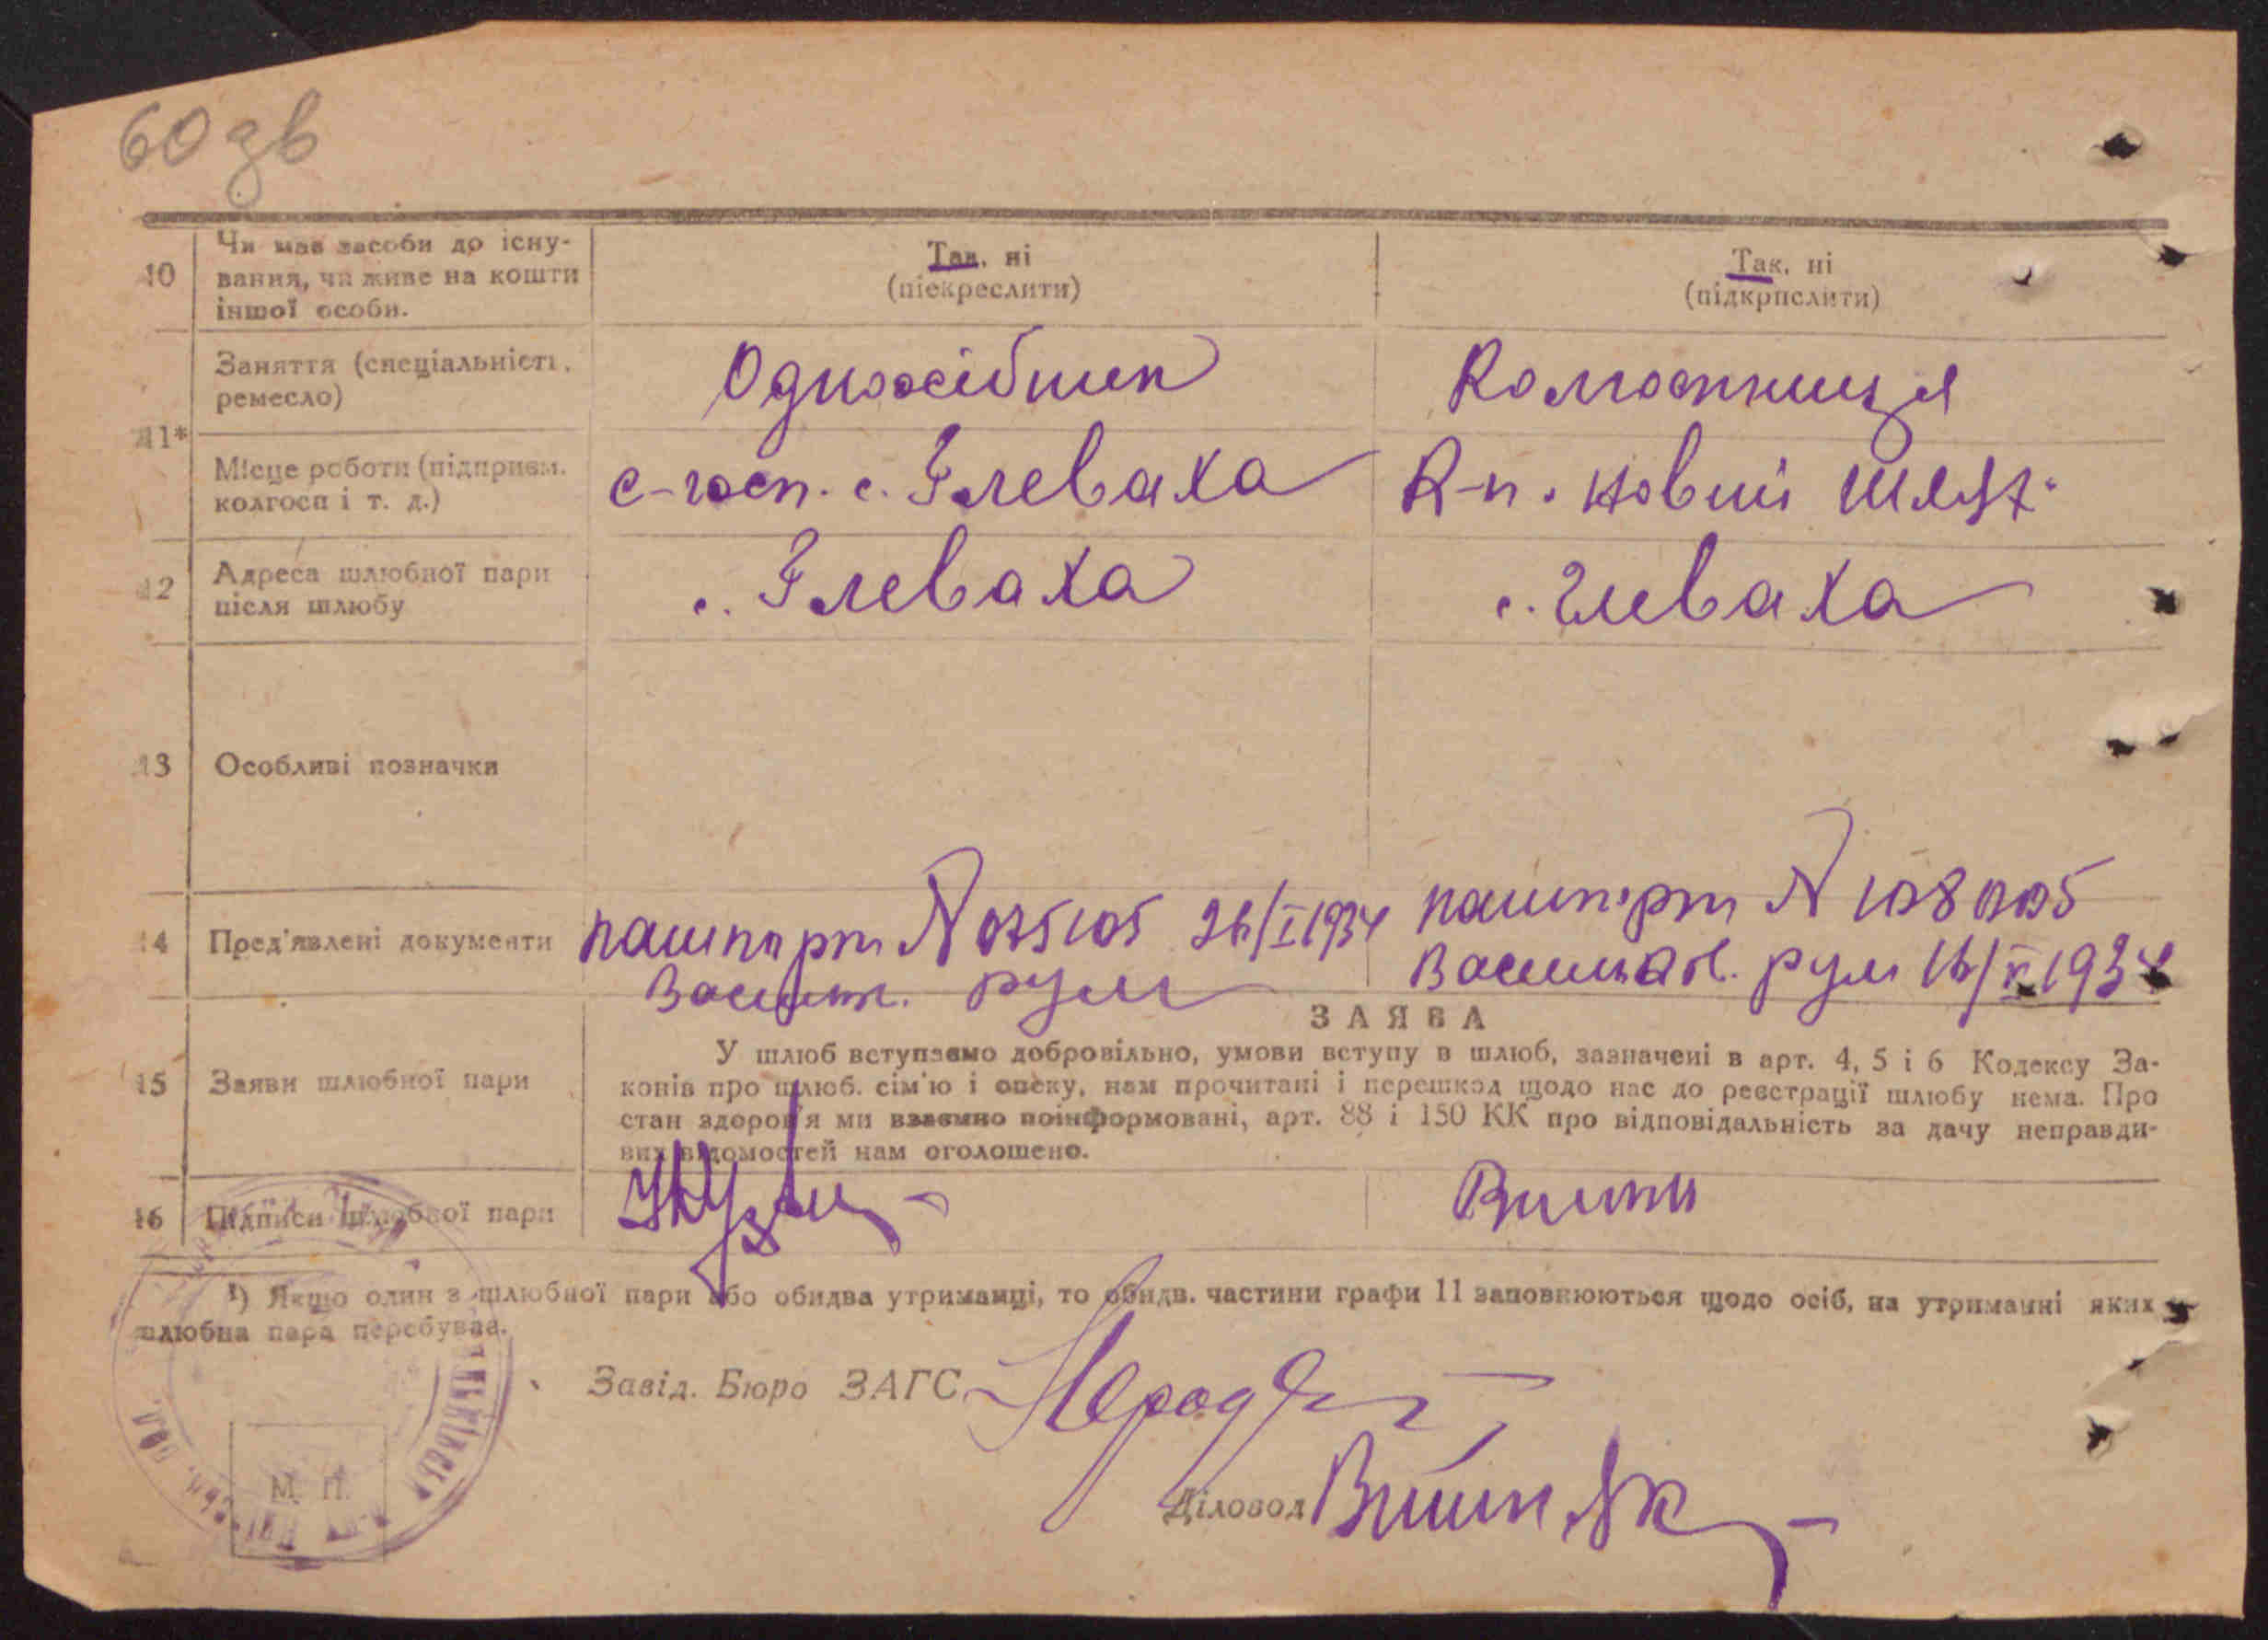 60 зв
10 Чи має засоби до існу-
вання, чи живе на кошти
іншої особи.
Так, ні
(піекреслити)
Так, ні
(підкрпслити)
11*
Заняття (спеціальність,
ремесло)
Одноосібник
Колгоспниця
Місце роботи (підприєм.
колгосп і т. д.)
с-госп. с. Глеваха
К-п. Новий Шлях.
12 Адреса шлюбної пари
після шлюбу
с. Глеваха
с. Глеваха
13 Особливі позначки
14 Пред'явлені документи
пашпорт № 075105 26/I 1934
Васильк. рум
пашпорт №
Васильков. рум 1934
15 Заяви шлюбної пари
ЗАЯВА
У шлюб вступаємо добровільно, умови вступу в шлюб, зазначені в арт. 4, 5 і 6 Кодексу За-
конів про шлюб. сім'ю і опеку, нам прочитані і перешкод щодо нас до реєстрації шлюбу нема. Про
стан здоров'я ми взаємно поінформовані, арт. 88 і 150 КК про відповідальність за дачу неправди-
вих відомостей нам оголошено.
16 Підписи шлюбної пари
¹) Якщо один з шлюбної пари або обидва утриманці, то обидв. частини графи 11 заповнюються щодо осіб, на утриманні яких
шлюбна пара перебуває.
Завід. Бюро ЗАГС
Діловод
М. П.